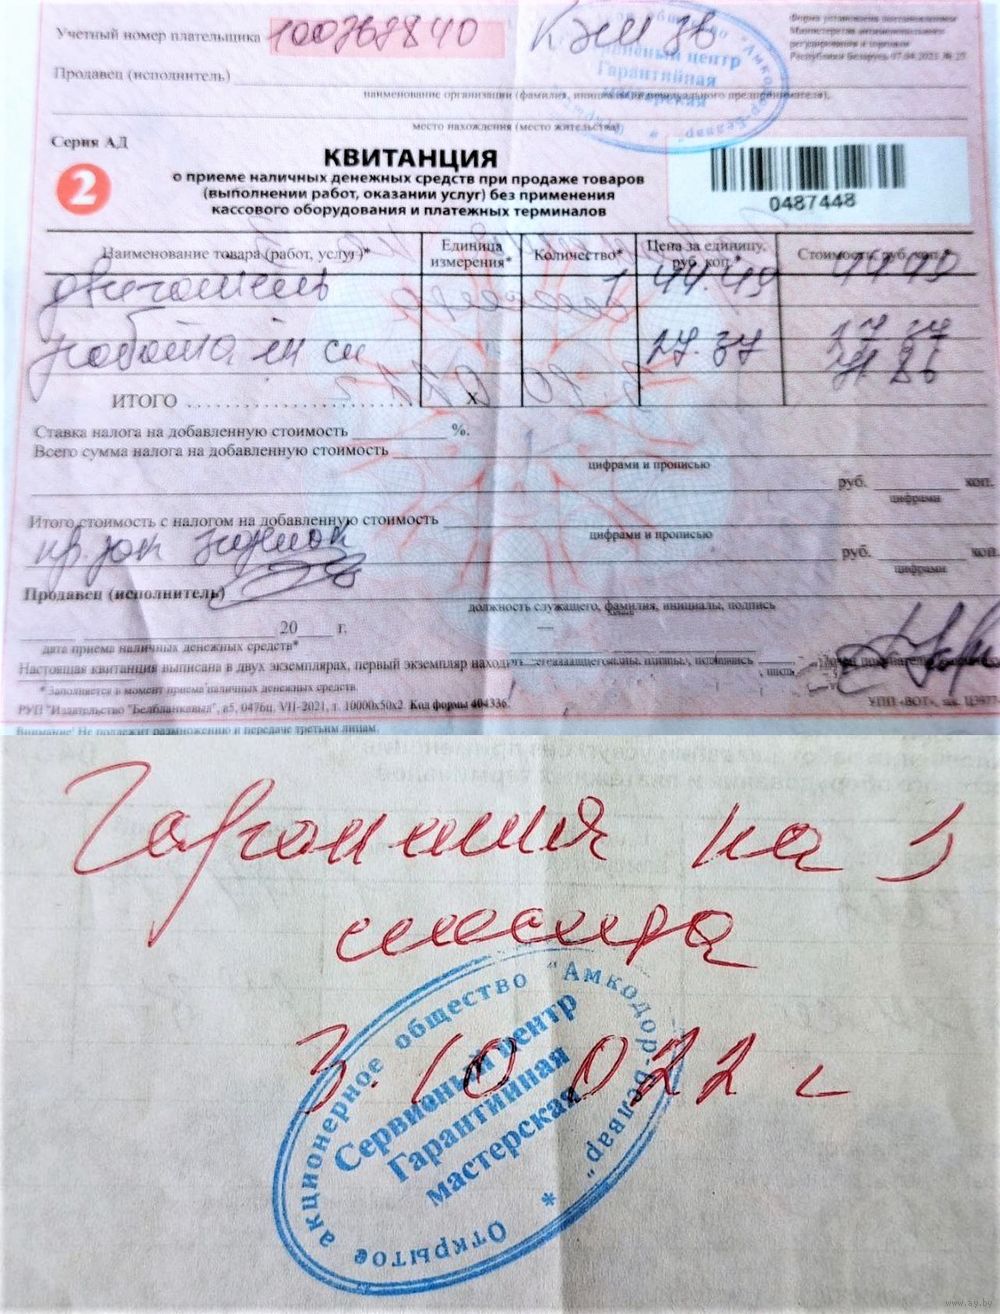 Учетный номер плательщика 100363840 Кэм 3в
Форма установлена постановлением
Министерства антимонопольного
регулирования и торговли
Республики Беларусь 07.04.2021 № 25
Сервисный центр
Гарантийная
мастерская
Продавец (исполнитель)
наименование организации (фамилия, инициалы индивидуального предпринимателя),
место нахождения (место жительства)
Серия АД
2
КВИТАНЦИЯ
о приеме наличных денежных средств при продаже товаров
(выполнении работ, оказании услуг) без применения
кассового оборудования и платежных терминалов
0487448
Наименование товара (работ, услуг)* Единица измерения* Количество* Цена за единицу, руб. коп.* Стоимость, руб. коп.*
двигатель 1 44.49 44 49
работа 27.37 27.37
71.86
ИТОГО x
Ставка налога на добавленную стоимость %.
Всего сумма налога на добавленную стоимость
цифрами и прописью
руб. коп.
цифрами
Итого стоимость с налогом на добавленную стоимость
цифрами и прописью
руб. коп.
цифрами
Продавец (исполнитель)
должность служащего, фамилия, инициалы, подпись
20 г.
дата приема наличных денежных средств*
Настоящая квитанция выписана в двух экземплярах, первый экземпляр
* Заполняется в момент приема наличных денежных средств
РУП "Издательство "Белбланкавыд", а5, 0476ц, VII-2021, т. 10000х50х2. Код формы 404336.
УПП «ВОТ», зак.
Внимание! Не подлежит размножению и передаче третьим лицам.
Гарантия на 3
месяца
3.10.022 г
Открытое акционерное общество "Амкодор-Белвар"
Сервисный центр
Гарантийная
мастерская
*
www.ay.by